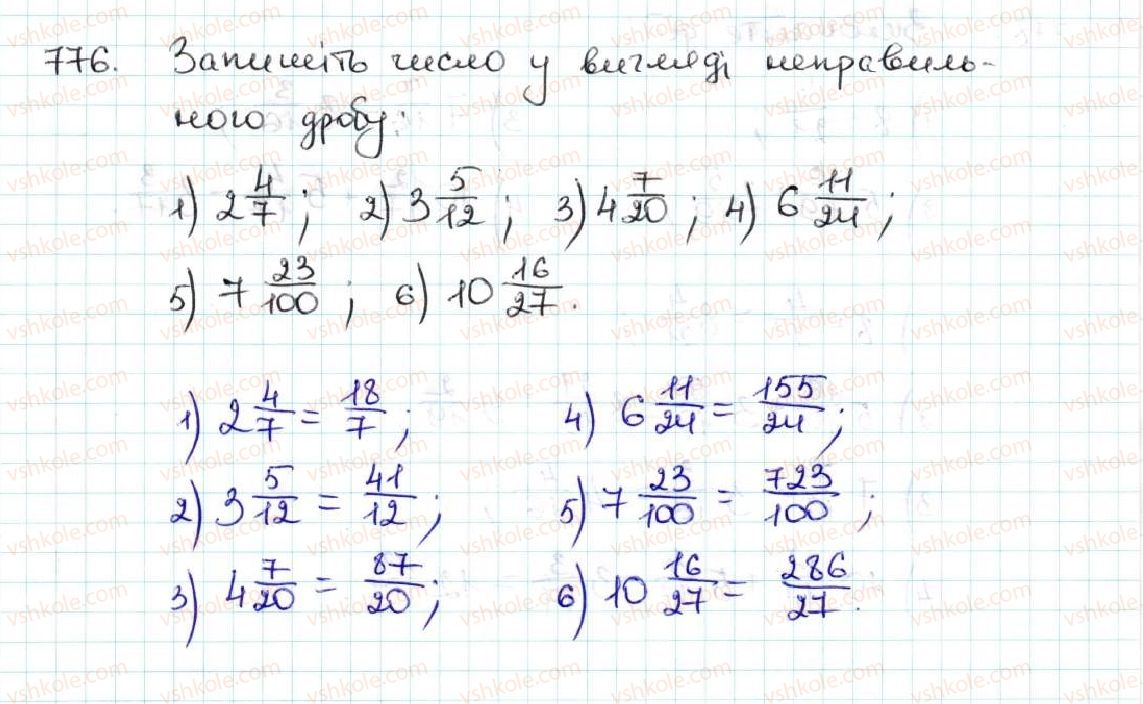 776. Запишіть число у вигляді неправиль-
ного дробу:
1) 2 4/7; 2) 3 5/12; 3) 4 7/20; 4) 6 11/24;
5) 7 23/100; 6) 10 16/27.
1) 2 4/7 = 18/7; 4) 6 11/24 = 155/24;
2) 3 5/12 = 41/12; 5) 7 23/100 = 723/100;
3) 4 7/20 = 87/20; 6) 10 16/27 = 286/27.
vshkole.com